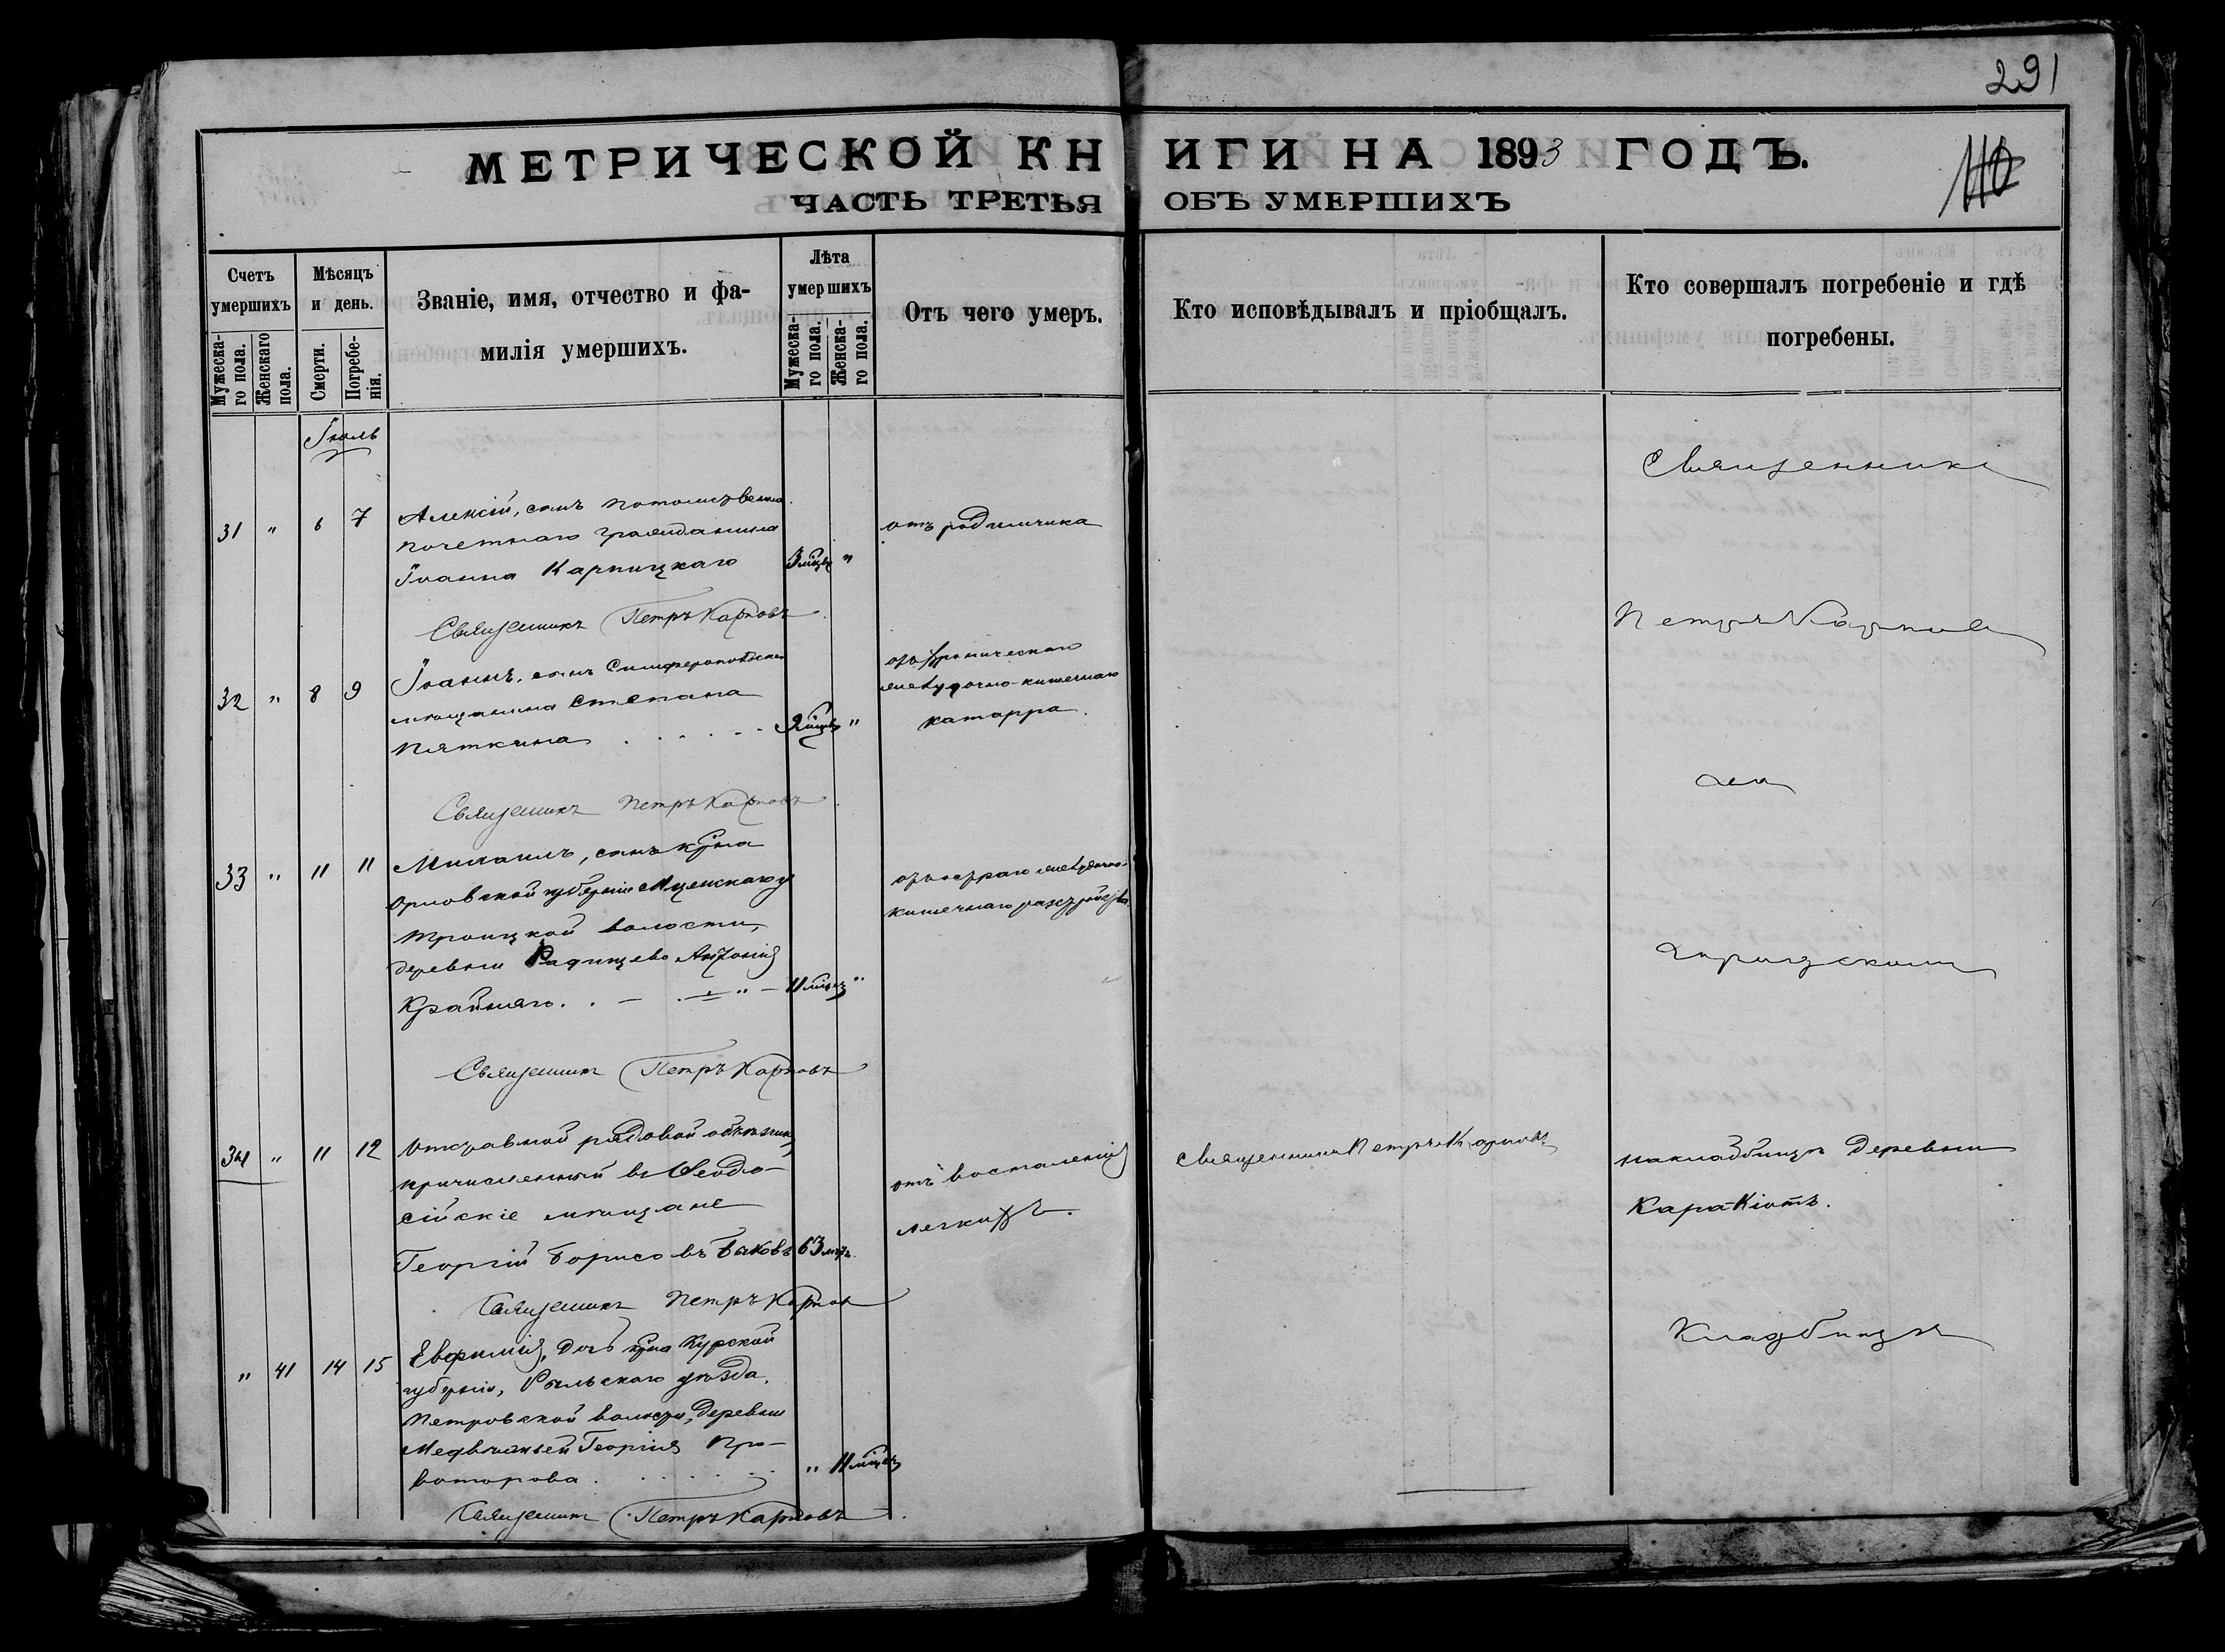 291
МЕТРИЧЕСКОЙ КНИГИ НА 1893 ГОДЪ.
110
ЧАСТЬ ТРЕТЬЯ ОБЪ УМЕРШИХЪ
Счетъ умершихъ
Мужеска-го пола.
Женскаго пола.
Мѣсяцъ и день.
Смерти.
Погребе-нія.
Званіе, имя, отчество и фа-
милія умершихъ.
Лѣта умершихъ
Мужеска-го пола.
Женска-го пола.
Отъ чего умеръ.
Кто исповѣдывалъ и пріобщалъ.
Кто совершалъ погребеніе и гдѣ
погребены.
Іюль
Священникъ
31 " 6 7 Алексій, сынъ потомственна
почетнаго гражданина
отъ родимчика
Іоанна Карпицкаго 3 мѣсц "
Священникъ Петръ Карповъ
Петръ Карповъ
32 " 8 9 Іоаннъ, сынъ Симферопольска
мѣщанина Степана
Пяткина . . . . . . 2 мѣсц "
отъ хроническаго
желудочно-кишечнаго
катарра.
Священникъ Петръ Карповъ
на
33 " 11 " Михаилъ, сынъ крна
Орловской губерніи Мценскаго у
Троицкой волости,
деревни Радищево Антонія
Крайняго. . 11 мѣсц "
отъ остраго желудочно-
кишечнаго разстройства.
городскомъ
Священникъ Петръ Карповъ
34 " 11 12 Отставной рядовой объѣзчик
причисленный въ Ѳеодо-
сійскіе мѣщане
Георгій Борисовъ Быковъ 63 лѣтъ.
отъ воспаленія
легкихъ.
Священникъ Петръ Карповъ
на кладбищѣ деревни
Кара-Кіятъ.
Священникъ Петръ Карповъ
Кладбищѣ
" 41 14 15 Евфимія, дочь крна Курской
губерніи, Рыльскаго уѣзда,
Петровской волости, деревни
Медвѣжьей Георгія Про-
воторова . . . . . . " 11 мѣсц
Священникъ Петръ Карповъ